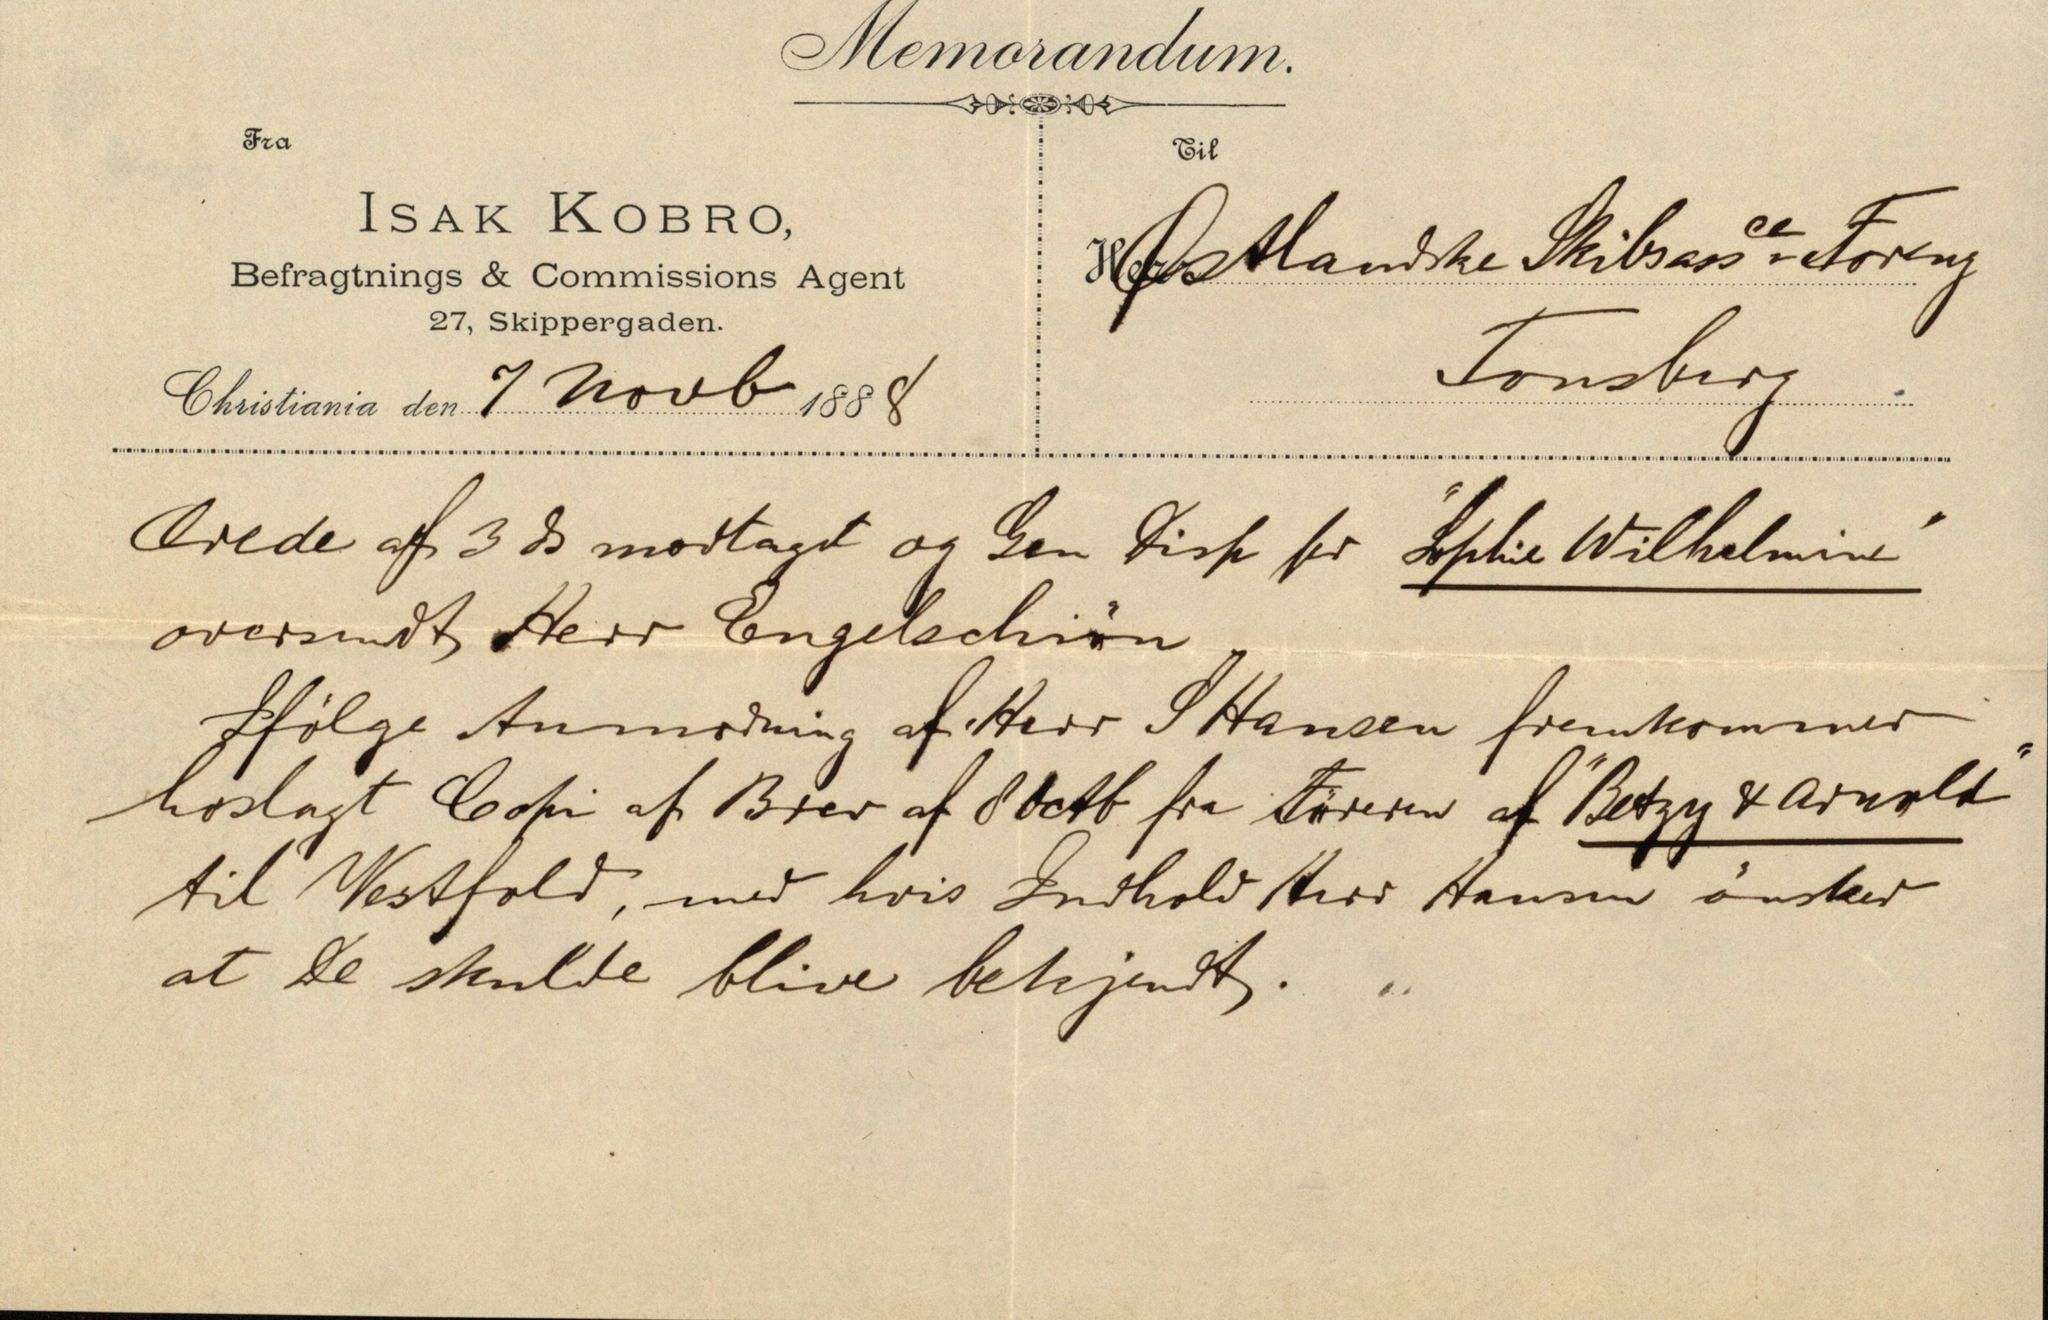 Memorandum.
Fra
Til
ISAK KOBRO,
Befragtnings & Commissions Agent
27, Skippergaden.
Christiania den 7 Novb 1888
Herr Østlandske Skibsassce-Foreng
Tonsberg
Ærede af 3 ds modtaget og Gen Disp for "Sophie Wilhelmine"
oversendt Herr Engelschiön
Ifölge Anmodning af Herr S Hansen fremkommer
hoslagt Copi af Brev af 8 Octb fra Föreren af "Betzy & Arnold"
til Vestfold, med hvis Indhold Herr Hansen önsker
at De skulde blive bekjendt.